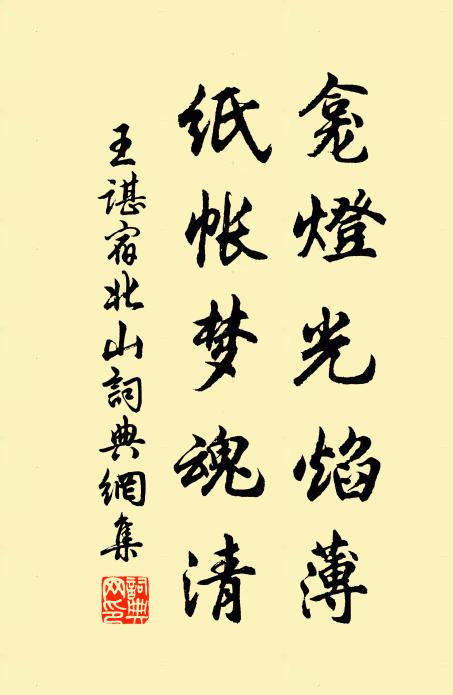 龛燈光焰薄
纸帐梦魂清
王谌宿北山詞典網集
詞典网印